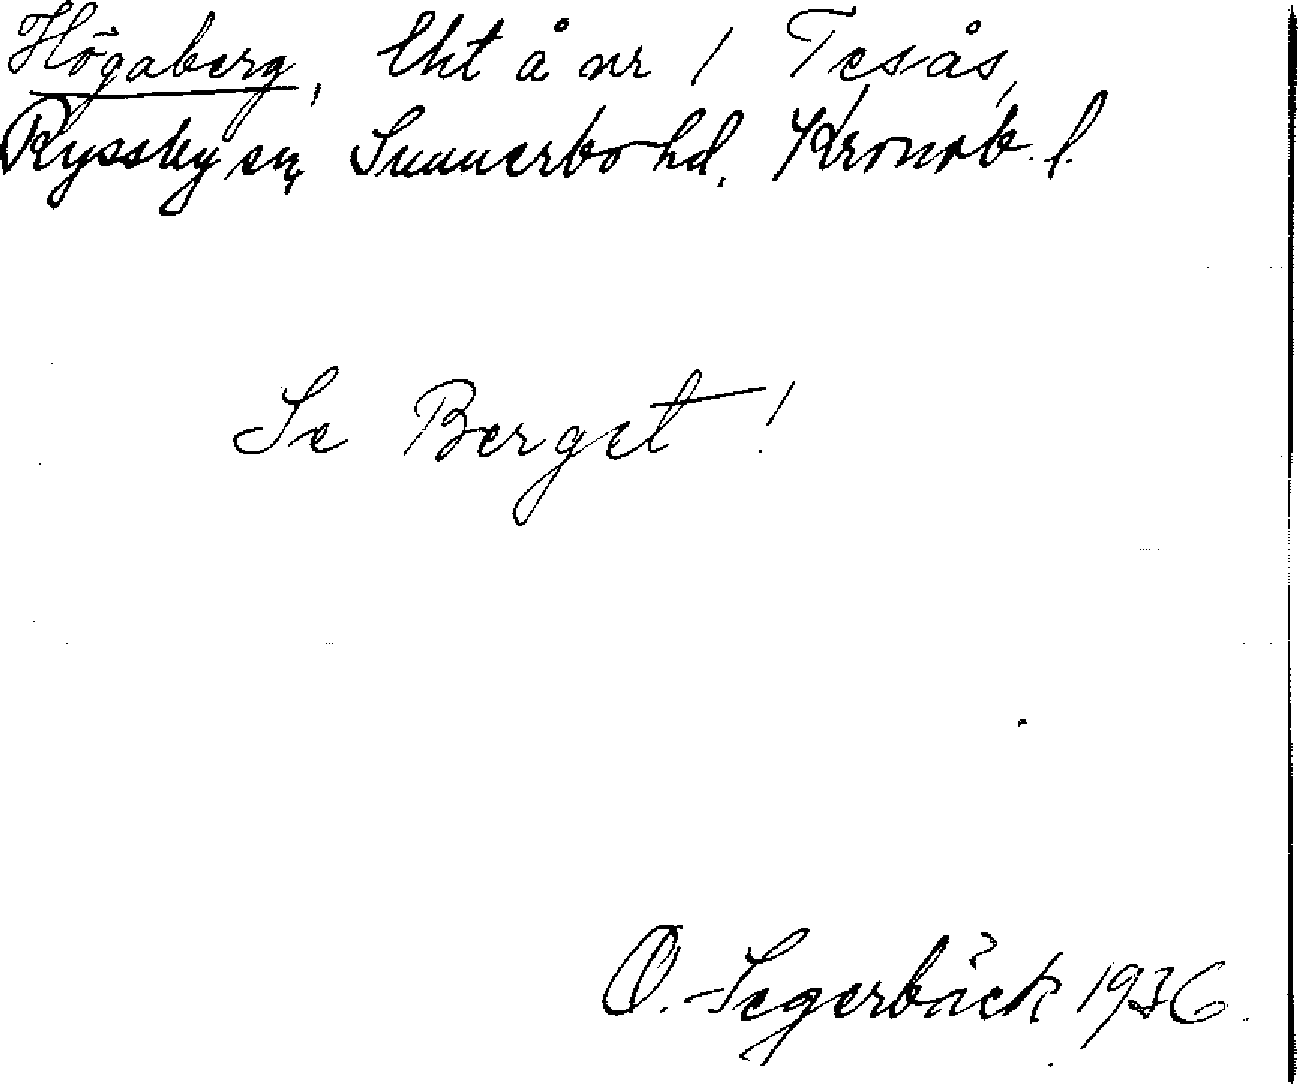 Högaberg, lht å nr 1 Tesås,
Ryssby sn, Sunnerbo hd. Kronob. l.
Se Berget!
O. Segerbäck 1936.